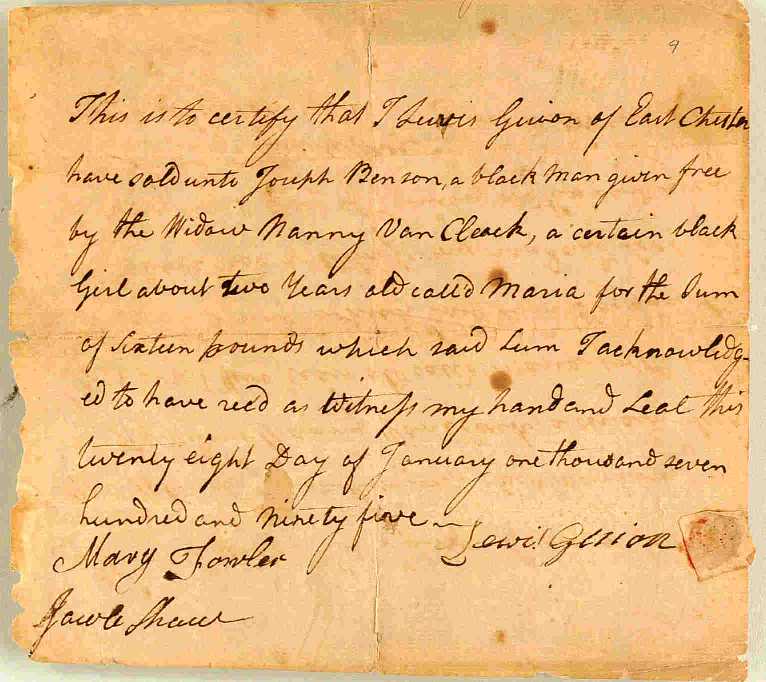 9
This is to certify that I Lewis Guion of East Chester
have sold unto Joseph Benson, a black Man given free
by the Widow Nanny Van Cleack, a certain black
Girl about two Years old called Maria for the Sum
of Sixteen pounds which said Sum I acknowledg-
ed to have rec'd as Witness my hand and Seal this
twenty eight Day of January one thousand seven
hundred and ninety five
Lewis Guion
Mary Fowler
Shaw